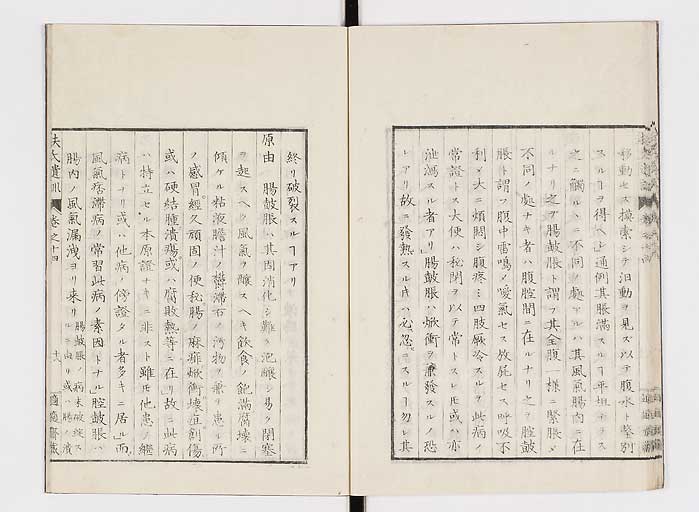 移動セス摸索シテ泊動ヲ見ズ以テ腹水ト鑒別
スルヿヲ得ヘシ通例其脹滿スルヿ平坦ナラス
之ニ觸ルヽニ不同ノ處アルハ其風氣腸内ニ在
ルナリ之ヲ腸皷脹ト謂フ其全腹一樣ニ緊脹メ
不同ノ處ナキ者ハ腹腔間ニ在ルナリ之ヲ腔皷
脹ト謂フ腹中雷鳴メ噯氣セス放屁セス呼吸不
利メ大ニ煩悶シ腹疼ミ四肢厥冷スルヲ此病ノ
常證トス大便ハ秘閉ヲ以テ常トスレ𪜈或ハ亦
泄瀉スル者アリ腸皷脹ハ焮衝ヲ兼發スルノ恐
レアリ故ニ發熱スル片ハ必忽ニスルヿ勿レ其
終リ破裂スルヿアリ
原由 腸皷脹ハ其固消化シ難ク泡釀シ易ク閉塞
ヲ起スヘク風氣ヲ釀スヘキ飲食ノ飽滿腐壞ニ
傾ケル粘液膽汁ノ鬱滯右ノ汚物ヲ兼ヌ患ル所
ノ感冒經久頑固ノ便秘腸ノ麻痺焮衝壞疽創傷
或ハ硬結腫潰瘍或ハ腐敗熱等ニ在リ故ニ此病
ハ特立セル本原證ナキニ非スト雖𪜈他患ノ繼
病トナリ或ハ他病ノ傍證タル者多キニ居ル而
風氣痞滯病ノ常習此病ノ素因トナル腔皷脹ハ
腸内ノ風氣漏洩ヨリ來リ 腸皷脹ノ病末破綻ス
ルニ由リ或ハ腸潰
扶氏遺訓 卷之十四 十八 適適齋藏